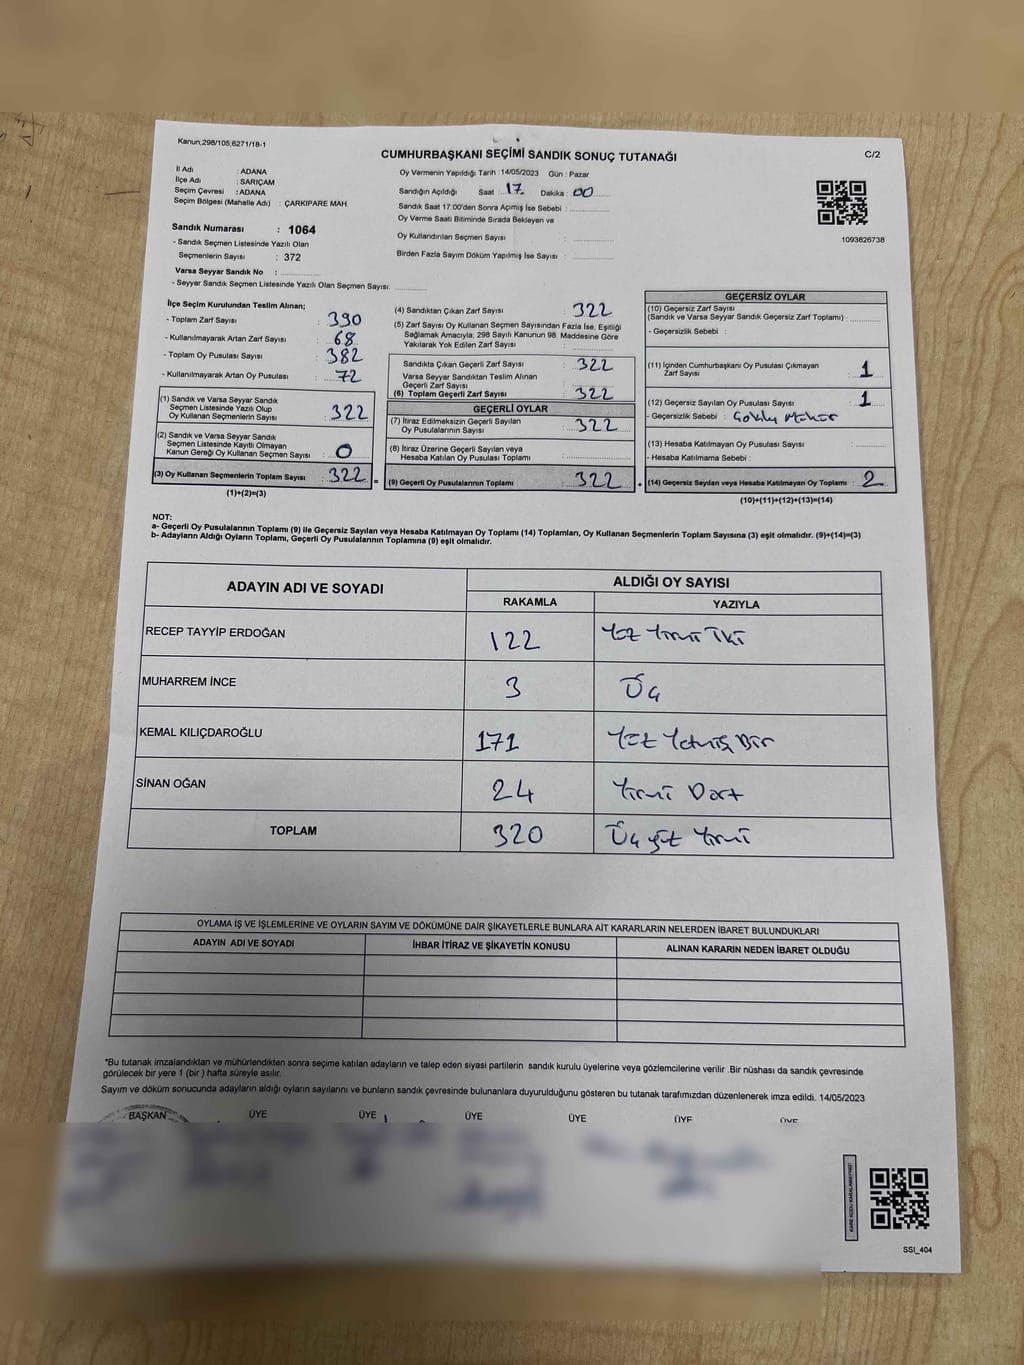 Kanun;298/105,6271/18-1
CUMHURBAŞKANI SEÇİMİ SANDIK SONUÇ TUTANAĞI
C/2
İl Adı : ADANA
İlçe Adı : SARIÇAM
Seçim Çevresi : ADANA
Seçim Bölgesi (Mahalle Adı) : ÇARKIPARE MAH.
Sandık Numarası : 1064
- Sandık Seçmen Listesinde Yazılı Olan
Seçmenlerin Sayısı : 372
Varsa Seyyar Sandık No :
- Seyyar Sandık Seçmen Listesinde Yazılı Olan Seçmen Sayısı:
Oy Vermenin Yapıldığı Tarih :14/05/2023 Gün : Pazar
Sandığın Açıldığı Saat : 17 Dakika : 00
Sandık Saat 17:00'den Sonra Açımış İse Sebebi :
Oy Verme Saati Bitiminde Sırada Bekleyen ve
Oy Kullandırılan Seçmen Sayısı :
Birden Fazla Sayım Döküm Yapılmış İse Sayısı :
1093826738
İlçe Seçim Kurulundan Teslim Alınan;
- Toplam Zarf Sayısı : 390
- Kullanılmayarak Artan Zarf Sayısı : 68
- Toplam Oy Pusulası Sayısı : 382
- Kullanılmayarak Artan Oy Pusulası : 72
(1) Sandık ve Varsa Seyyar Sandık
Seçmen Listesinde Yazılı Olup
Oy Kullanan Seçmenlerin Sayısı : 322
(2) Sandık ve Varsa Seyyar Sandık
Seçmen Listesinde Kayıtlı Olmayan
Kanun Gereği Oy Kullanan Seçmen Sayısı : 0
(3) Oy Kullanan Seçmenlerin Toplam Sayısı : 322
(1)+(2)=(3)
(4) Sandıktan Çıkan Zarf Sayısı : 322
(5) Zarf Sayısı Oy Kullanan Seçmen Sayısından Fazla İse, Eşitliği
Sağlamak Amacıyla; 298 Sayılı Kanunun 98. Maddesine Göre
Yakılarak Yok Edilen Zarf Sayısı :
Sandıkta Çıkan Geçerli Zarf Sayısı : 322
Varsa Seyyar Sandıktan Teslim Alınan
Geçerli Zarf Sayısı :
(6) Toplam Geçerli Zarf Sayısı : 322
GEÇERLİ OYLAR
(7) İtiraz Edilmeksizin Geçerli Sayılan
Oy Pusulalarının Sayısı : 322
(8) İtiraz Üzerine Geçerli Sayılan veya
Hesaba Katılan Oy Pusulası Toplamı :
= (9) Geçerli Oy Pusulalarının Toplamı : 322
GEÇERSİZ OYLAR
(10) Geçersiz Zarf Sayısı
(Sandık ve Varsa Seyyar Sandık Geçersiz Zarf Toplamı) :
- Geçersizlik Sebebi :
(11) İçinden Cumhurbaşkanı Oy Pusulası Çıkmayan
Zarf Sayısı : 1
(12) Geçersiz Sayılan Oy Pusulası Sayısı : 1
- Geçersizlik Sebebi :
(13) Hesaba Katılmayan Oy Pusulası Sayısı :
- Hesaba Katılmama Sebebi :
+ (14) Geçersiz Sayılan veya Hesaba Katılmayan Oy Toplamı : 2
(10)+(11)+(12)+(13)=(14)
NOT:
a- Geçerli Oy Pusulalarının Toplamı (9) ile Geçersiz Sayılan veya Hesaba Katılmayan Oy Toplamı (14) Toplamları, Oy Kullanan Seçmenlerin Toplam Sayısına (3) eşit olmalıdır. (9)+(14)=(3)
b- Adayların Aldığı Oyların Toplamı, Geçerli Oy Pusulalarının Toplamına (9) eşit olmalıdır.
ADAYIN ADI VE SOYADI ALDIĞI OY SAYISI
RAKAMLA YAZIYLA
RECEP TAYYİP ERDOĞAN 122 Yüz Yirmi İki
MUHARREM İNCE 3 Üç
KEMAL KILIÇDAROĞLU 171 Yüz Yetmiş Bir
SİNAN OĞAN 24 Yirmi Dört
TOPLAM 320 Üç yüz Yirmi
OYLAMA İŞ VE İŞLEMLERİNE VE OYLARIN SAYIM VE DÖKÜMÜNE DAİR ŞİKAYETLERLE BUNLARA AİT KARARLARIN NELERDEN İBARET BULUNDUKLARI
ADAYIN ADI VE SOYADI İHBAR İTİRAZ VE ŞİKAYETİN KONUSU ALINAN KARARIN NEDEN İBARET OLDUĞU
*Bu tutanak imzalandıktan ve mühürlendikten sonra seçime katılan adayların ve talep eden siyasi partilerin sandık kurulu üyelerine veya gözlemcilerine verilir .Bir nüshası da sandık çevresinde
görülecek bir yere 1 (bir ) hafta süreyle asılır.
Sayım ve döküm sonucunda adayların aldığı oyların sayılarını ve bunların sandık çevresinde bulunanlara duyurulduğunu gösteren bu tutanak tarafımızdan düzenlenerek imza edildi. 14/05/2023
BAŞKAN ÜYE ÜYE ÜYE ÜYE ÜYE ÜYE
KARE KODU KARALAMAYINIZ!
SSI_404